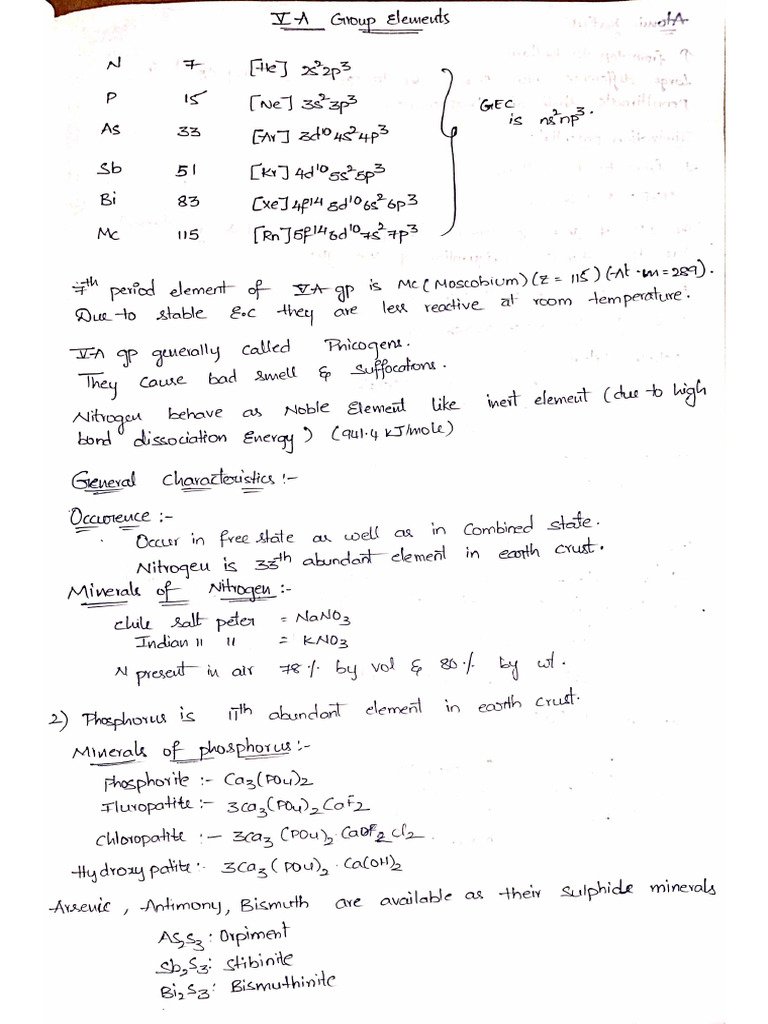 V-A Group Elements
N 7 [He] 2s²2p³
P 15 [Ne] 3s²3p³
As 33 [Ar] 3d¹⁰4s²4p³
Sb 51 [Kr] 4d¹⁰5s²5p³
Bi 83 [Xe] 4f¹⁴5d¹⁰6s²6p³
Mc 115 [Rn] 5f¹⁴6d¹⁰7s²7p³
GEC
is ns²np³.
7th period element of VA gp is Mc (Moscobium) (Z = 115) (At.m = 289).
Due to stable E.C they are less reactive at room temperature.
V-A gp generally called Pnicogens.
They cause bad smell & suffocations.
Nitrogen behave as Noble Element like inert element (due to high
bond dissociation Energy) (941.4 kJ/mole)
General Characteristics :-
Occurence :-
Occur in free state as well as in combined state.
Nitrogen is 33th abundant element in earth crust.
Minerals of Nitrogen :-
chile salt peter = NaNO3
Indian " " = KNO3
N present in air 78% by vol & 80% by wt.
2) Phosphorus is 11th abundant element in earth crust.
Minerals of phosphorus :-
Phosphorite :- Ca3(PO4)2
Fluropatite :- 3Ca3(PO4)2 CaF2
Chloropatite :- 3Ca3(PO4)2. Cl2
Hydroxypatite :- 3Ca3(PO4)2. Ca(OH)2
Arsenic, Antimony, Bismuth are available as their sulphide minerals
As2S3 : Orpiment
Sb2S3 : Stibinite
Bi2S3 : Bismuthinite